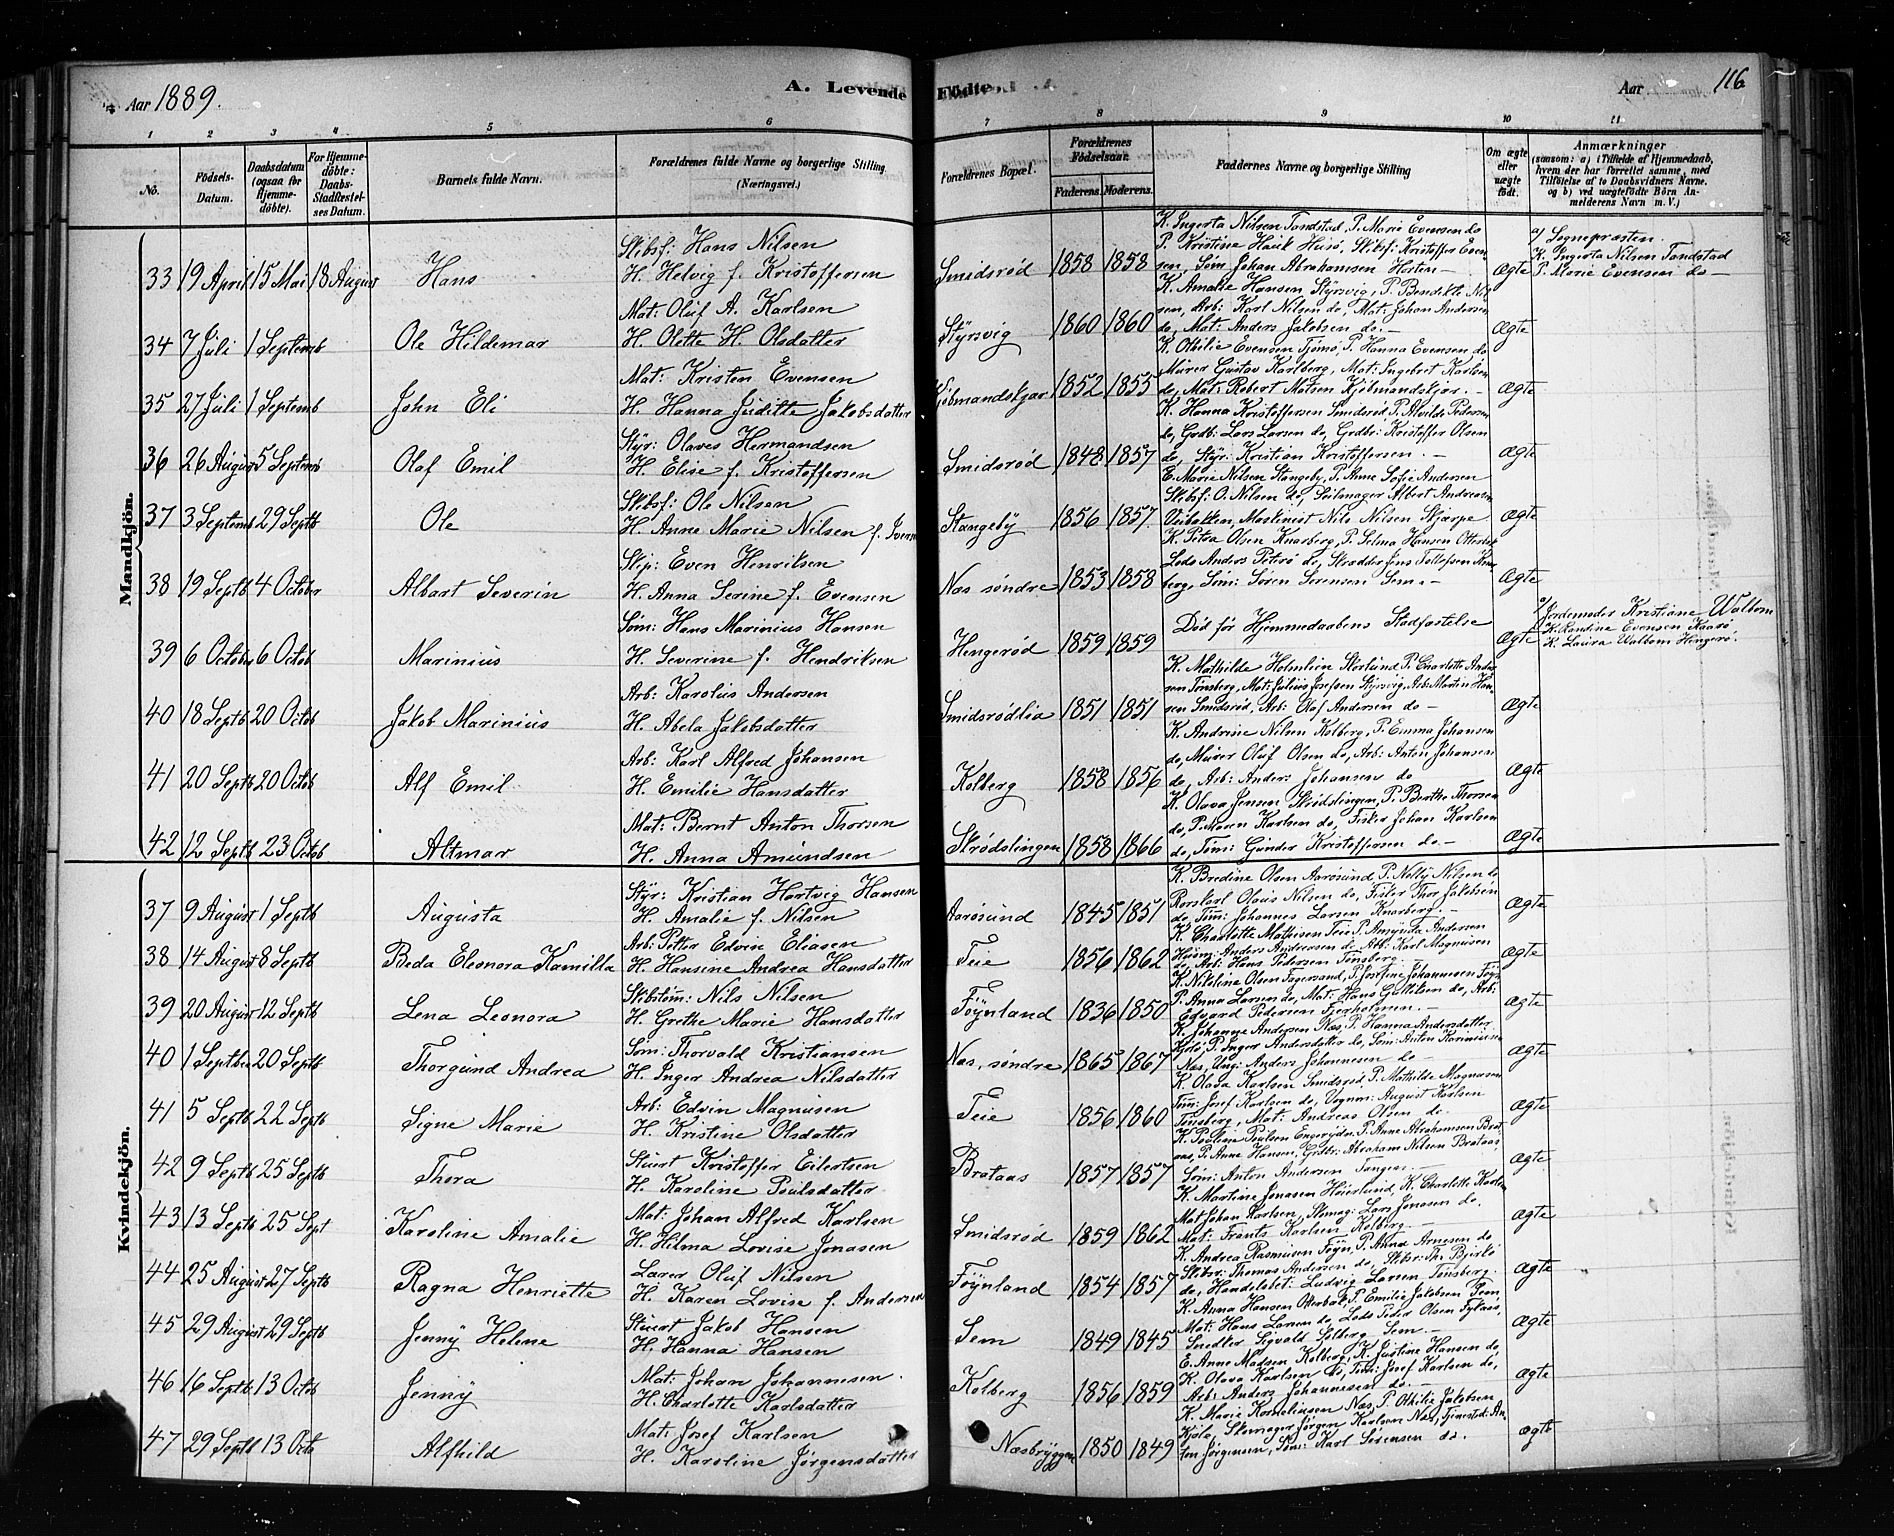 Aar 1889.
A. Levende Fødte.
Aar
116
1 2 3 4 5 6 7 8 9 10 11
No.
Fødsels-Datum.
Daabsdatum (ogsaa for Hjemme-døbte).
For Hjemme-døbte: Daabs-Stadfæstel-ses Datum.
Barnets fulde Navn.
Forældrenes fulde Navne og borgerlige Stilling.
(Næringsvei.)
Forældrenes Bopæl.
Forældrenes Fødselsaar.
Faderens. Moderens.
Faddernes Navne og borgerlige Stilling
Om ægte eller uægte født.
Anmærkninger
(saasom: a) i Tilfælde af Hjemmedaab,
hvem der har forrettet samme, med
Tilføielse af to Daabsvidners Navne.
og b) ved uægtefødte Børn An-
melderens Navn m. V.)
Mandkjøn.
33 19 April 15 Mai 18 August Hans
Skibsf: Hans Nilsen
H. Helvig f. Kristoffersen
Smidsrød 1858 1858
K. Ingerta Nilsen Tandstad, P. Marie Evensen do
P. Kristine Hauk Husø, Skibsf: Kristoffer Even
sen, Søm. Johan Abrahamsen Horten –
Ægte
a) Sognepræsten.
K. Ingerta Nilsen Tandstad
P. Marie Evensen do –
34 7 Juli 1 Septemb Ole Hildemar
Mat: Oluf A. Karlsen
H. Olette H. Olsdatter
Styrsvig 1860 1860
K. Amalie Hansen Styrsvig, P. Benedikte Nil
sen, Arb: Karl Nilsen do, Mat: Johan Andersen
do, Mat: Anders Jakobsen do. –
Ægte
35 27 Juli 1 Septemb John Eli
Mat: Kristen Evensen
H. Hanna Juditte Jakobsdatter
Kjøbmandskjær 1852 1855
K. Othilie Evensen Tjømø, P. Hanna Evensen do
Murer Gustav Karlberg, Mat: Ingebert Karlsen
do, Mat: Robert Matsen Kjøbmandskjær. –
Ægte
36 26 August 5 Septemb Olaf Emil
Styr: Olaves Hermandsen
H. Elise f. Kristoffersen
Smidsrød 1848 1857
K. Hanna Kristoffersen Smidsrød, P. Alvilde Pedersen
do, Grdb: Lars Larsen do, Grdbr: Kristoffer Olsen
do, Styr: Kristian Kristoffersen. –
Ægte
37 3 Septemb 29 Septb Ole
Skibsf: Ole Nilsen
H. Anne Marie Nilsen f. Iversen
Stangeby 1856 1857
E. Marie Nilsen Stangeby, P. Anne Sofie Andersen
Skibsf: O. Nilsen do, Seilmager Albert Andreasen
Veibakken, Maskinist Nils Nilsen Skjærpe
Ægte
38 19 Septb 4 October Albart Severin
Skip: Even Henriksen
H. Anna Serine f. Evensen
Næs søndre 1853 1858
K. Petra Olsen Knarberg, P. Selma Hansen Otterbæk
Lods Anders Peterø do, Skrædder Jens Tollefsen Knar
berg, Søm: Søren Sørensen Sem. –
Ægte
39 6 Octob 6 Octob Marinius
Søm: Hans Marinius Hansen
H. Severine f. Hendriksen
Hengerød 1859 1859
Død før Hjemmedaabens Stadfæstelse
Ægte
a) Jordemoder Kristiane Walbom
K. Randine Evensen Kaasø
K. Laura Walbom Hengerø.
40 18 Septb 20 Octob Jakob Marinius
Arb: Karolus Andersen
H. Abela Jakobsdatter
Smidsrødlia 1851 1851
K. Mathilde Holmlien Skorlund P. Charlotte Ander
sen Tønsberg, Mat: Julius Josefsen Styrsvig, Arb. Martin Han
sen Smidsrød, Arb: Olaf Andersen do –
Ægte
41 20 Septb 20 Octob Alf Emil
Arb: Karl Alfred Johansen
H. Emilie Hansdatter
Kolberg 1858 1856
K. Andrine Nilsen Kolberg, P. Emma Johansen
do, Murer Oluf Olsen do, Arb: Anton Johansen
do, Arb: Anders Johansen do
Ægte
42 12 Septb 23 Octob Altmar
Mat: Bernt Anton Thorsen
H. Anna Amundsen
Skrødslingen 1858 1866
K. Olava Jensen Skrødslingen, P. Berthe Thorsen
do, P. Maren Karlsen do, Fisker Johan Karlsen
do, Tøm: Gunder Kristoffersen do –
Ægte
Kvindekjøn.
37 9 August 1 Septb Augusta
Styr: Kristian Hartvig Hansen
H. Amalie f. Nilsen
Aarøsund 1845 1851
K. Bredine Olsen Aarøsund P. Nelly Nilsen do
Korskarl Olaus Nilsen do, Fisker Thor Jakobsen
do, Tøm: Johannes Larsen Knarberg. –
Ægte
38 14 August 8 Septb Beda Eleonora Kamilla
Arb: Petter Edvin Eliasen
H. Hansine Andrea Hansdatter
Teie 1856 1862
K. Charlotte Mathisen Teie P. Amunda Andersen
Husm: Anders Andreasen do, Arb: Karl Magnusen
do, Arb: Hans Pedersen Tønsberg.
Ægte
39 20 August 12 Septb Lena Leonora
Skibstøm: Nils Nilsen
H. Grethe Marie Hansdatter
Føynland 1836 1850
K. Nikoline Olsen Fagersand, P. Josefine Johannesen Føyn
P. Anna Larsen do, Mat: Hans Gulliksen do, Arb:
Edvard Pedersen Fjærholmen. –
Ægte
40 1 Septbr 20 Septb Thorgund Andrea
Søm: Thorvald Kristiansen
H. Inger Andrea Nilsdatter
Næs, søndre 1865 1867
K. Johanne Andersen Næs, P. Hanna Andersdatter
Kjøle, P. Inger Andersdatter do, Søm: Anton Marinius
Næs, Ung: Anders Johannesen do –
Ægte
41 5 Septb 22 Septb Signe Marie
Arb: Edvin Magnusen
H. Kristine Olsdatter
Teie 1856 1860
K. Olava Karlsen Smidsrød, P. Mathilde Magnusen
Tøm: Josef Karlsen do, Vognm: August Karlsen
Tønsberg, Mat: Andreas Olsen do.
Ægte
42 9 Septb 25 Septb Thora
Stuert Kristoffer Eilertsen
H. Karoline Poulsdatter
Brataas 1857 1857
K. Pauline Paulsen Engerydn, P. Anne Abrahamsen Brat
aas, P. Anne Hansen, Grdbr: Abraham Nilsen Brataas,
Søm: Anton Andersen Tangen. –
Ægte
43 13 Septb 25 Sept Karoline Amalie
Mat: Johan Alfred Karlsen
H. Hilma Lovise Jonasen
Smidsrød 1859 1862
K. Martine Jonasen Høierlund, K. Charlotte Karlsen
Mat Johan Karlsen, Skomag: Lars Jonasen do.
Mat: Frants Karlsen Kolberg. –
Ægte
44 25 August 27 Septb Ragna Henriette
Lærer Oluf Nilsen
H. Karen Lovise f. Andersen
Føynland 1854 1857
K. Andrea Rasmusen Føyn, P. Anna Arnesen do
Skibsr: Thomas Andersen do, Skibsr: Th. Bjerkø
do, Handelsbet: Ludvig Larsen Tønsberg.
Ægte
45 29 August 29 Septb Jenny Helene
Stuert Jakob Hansen
H. Hanna Hansen
Sem 1849 1845
K. Anna Hansen Oterbæk, P. Emilie Jakobsen Sem,
Mat: Hans Larsen do, Lods Peder Olsen Fyknes,
Snedker Sigvald Solberg Sem. –
Ægte
46 16 Septb 13 Octob Jenny
Mat: Johan Johannesen.
H. Charlotte Karlsdatter
Kolberg 1856 1859
E. Anne Madsen Kolberg, K. Justine Hansen do,
K. Olava Karlsen do, Tøm: Josef Karlsen do,
Arb: Anders Johannesen do.
Ægte
47 29 Septb 13 Octo Alfhild
Mat: Josef Karlsen
H. Karoline Jørgensdatter
Næsbryggen 1850 1849
K. Marie Korneliusen Næs, P. Othilie Jakobsen
Kjøle, Skomager Jørgen Karlsen Næs, Tjenestd: An
ton Jørgensen, Søm: Karl Sørensen do.
Ægte